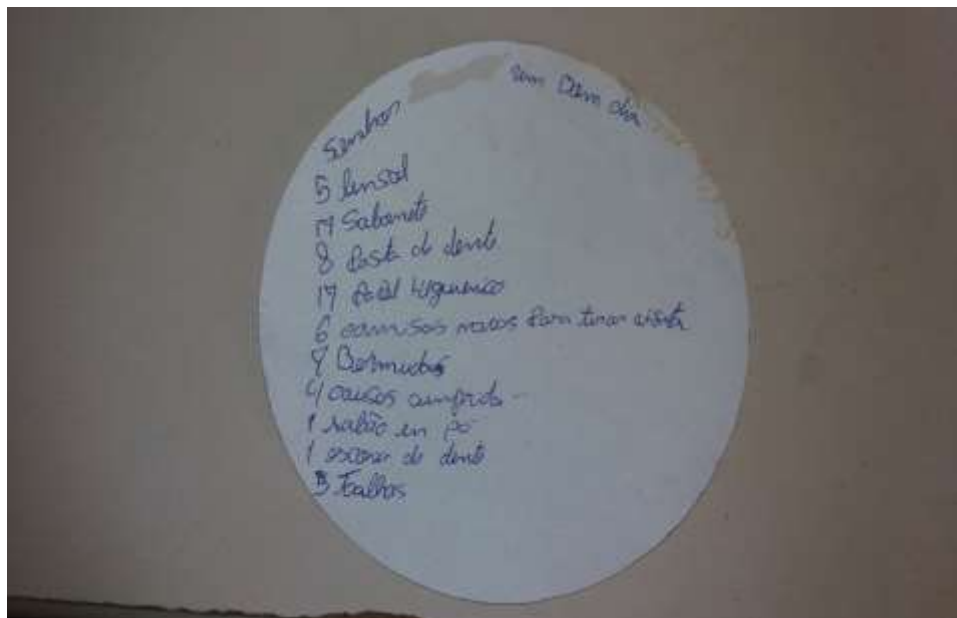 Senhor um Bom dia
5 lensol
17 Sabonete
8 Pasta de dente
17 Papel Higienico
6 camisas Para tirar visita
4 Bermudas
4 causas cumprida
1 sabão en po
1 escova de dente
3 Toalhas